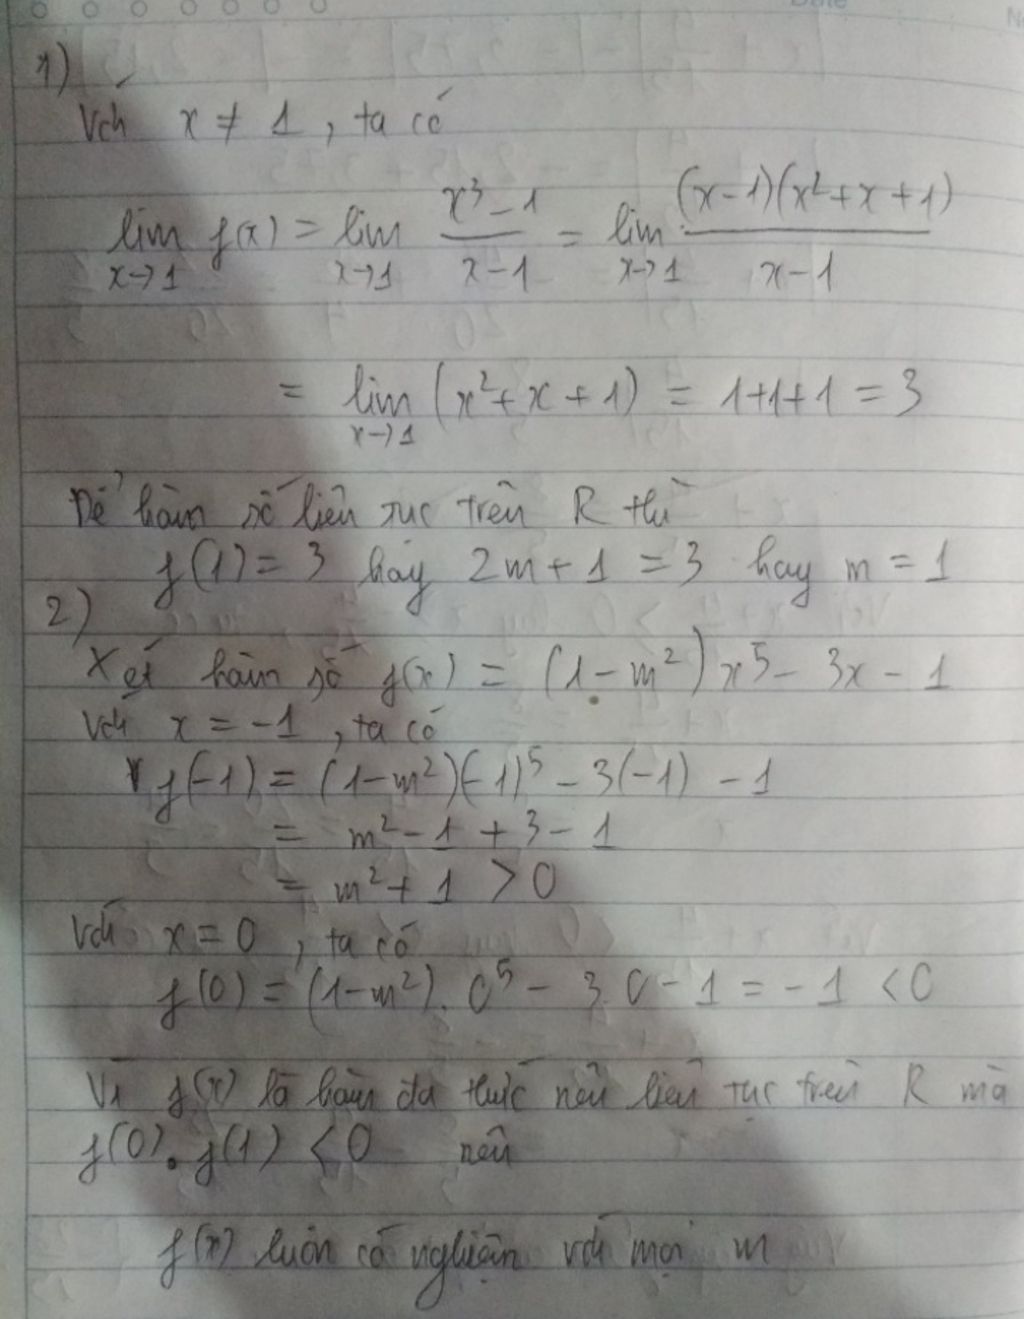 1)
Với x ≠ 1, ta có
lim f(x) = lim (x³ - 1)/(x - 1) = lim (x-1)(x²+x+1)/(x-1)
x→1 x→1 x→1
= lim (x²+x+1) = 1+1+1 = 3
x→1
Để hàm số liên tục trên R thì
f(1) = 3 hay 2m + 1 = 3 hay m = 1
2)
Xét hàm số f(x) = (1-m²)x⁵ - 3x - 1
Với x = -1, ta có
f(-1) = (1-m²)(-1)⁵ - 3(-1) - 1
= m² - 1 + 3 - 1
= m² + 1 > 0
Với x = 0, ta có
f(0) = (1-m²).0⁵ - 3.0 - 1 = -1 < 0
Vì f(x) là hàm đa thức nên liên tục trên R mà
f(0).f(1) < 0 nên
f(x) luôn có nghiệm với mọi m